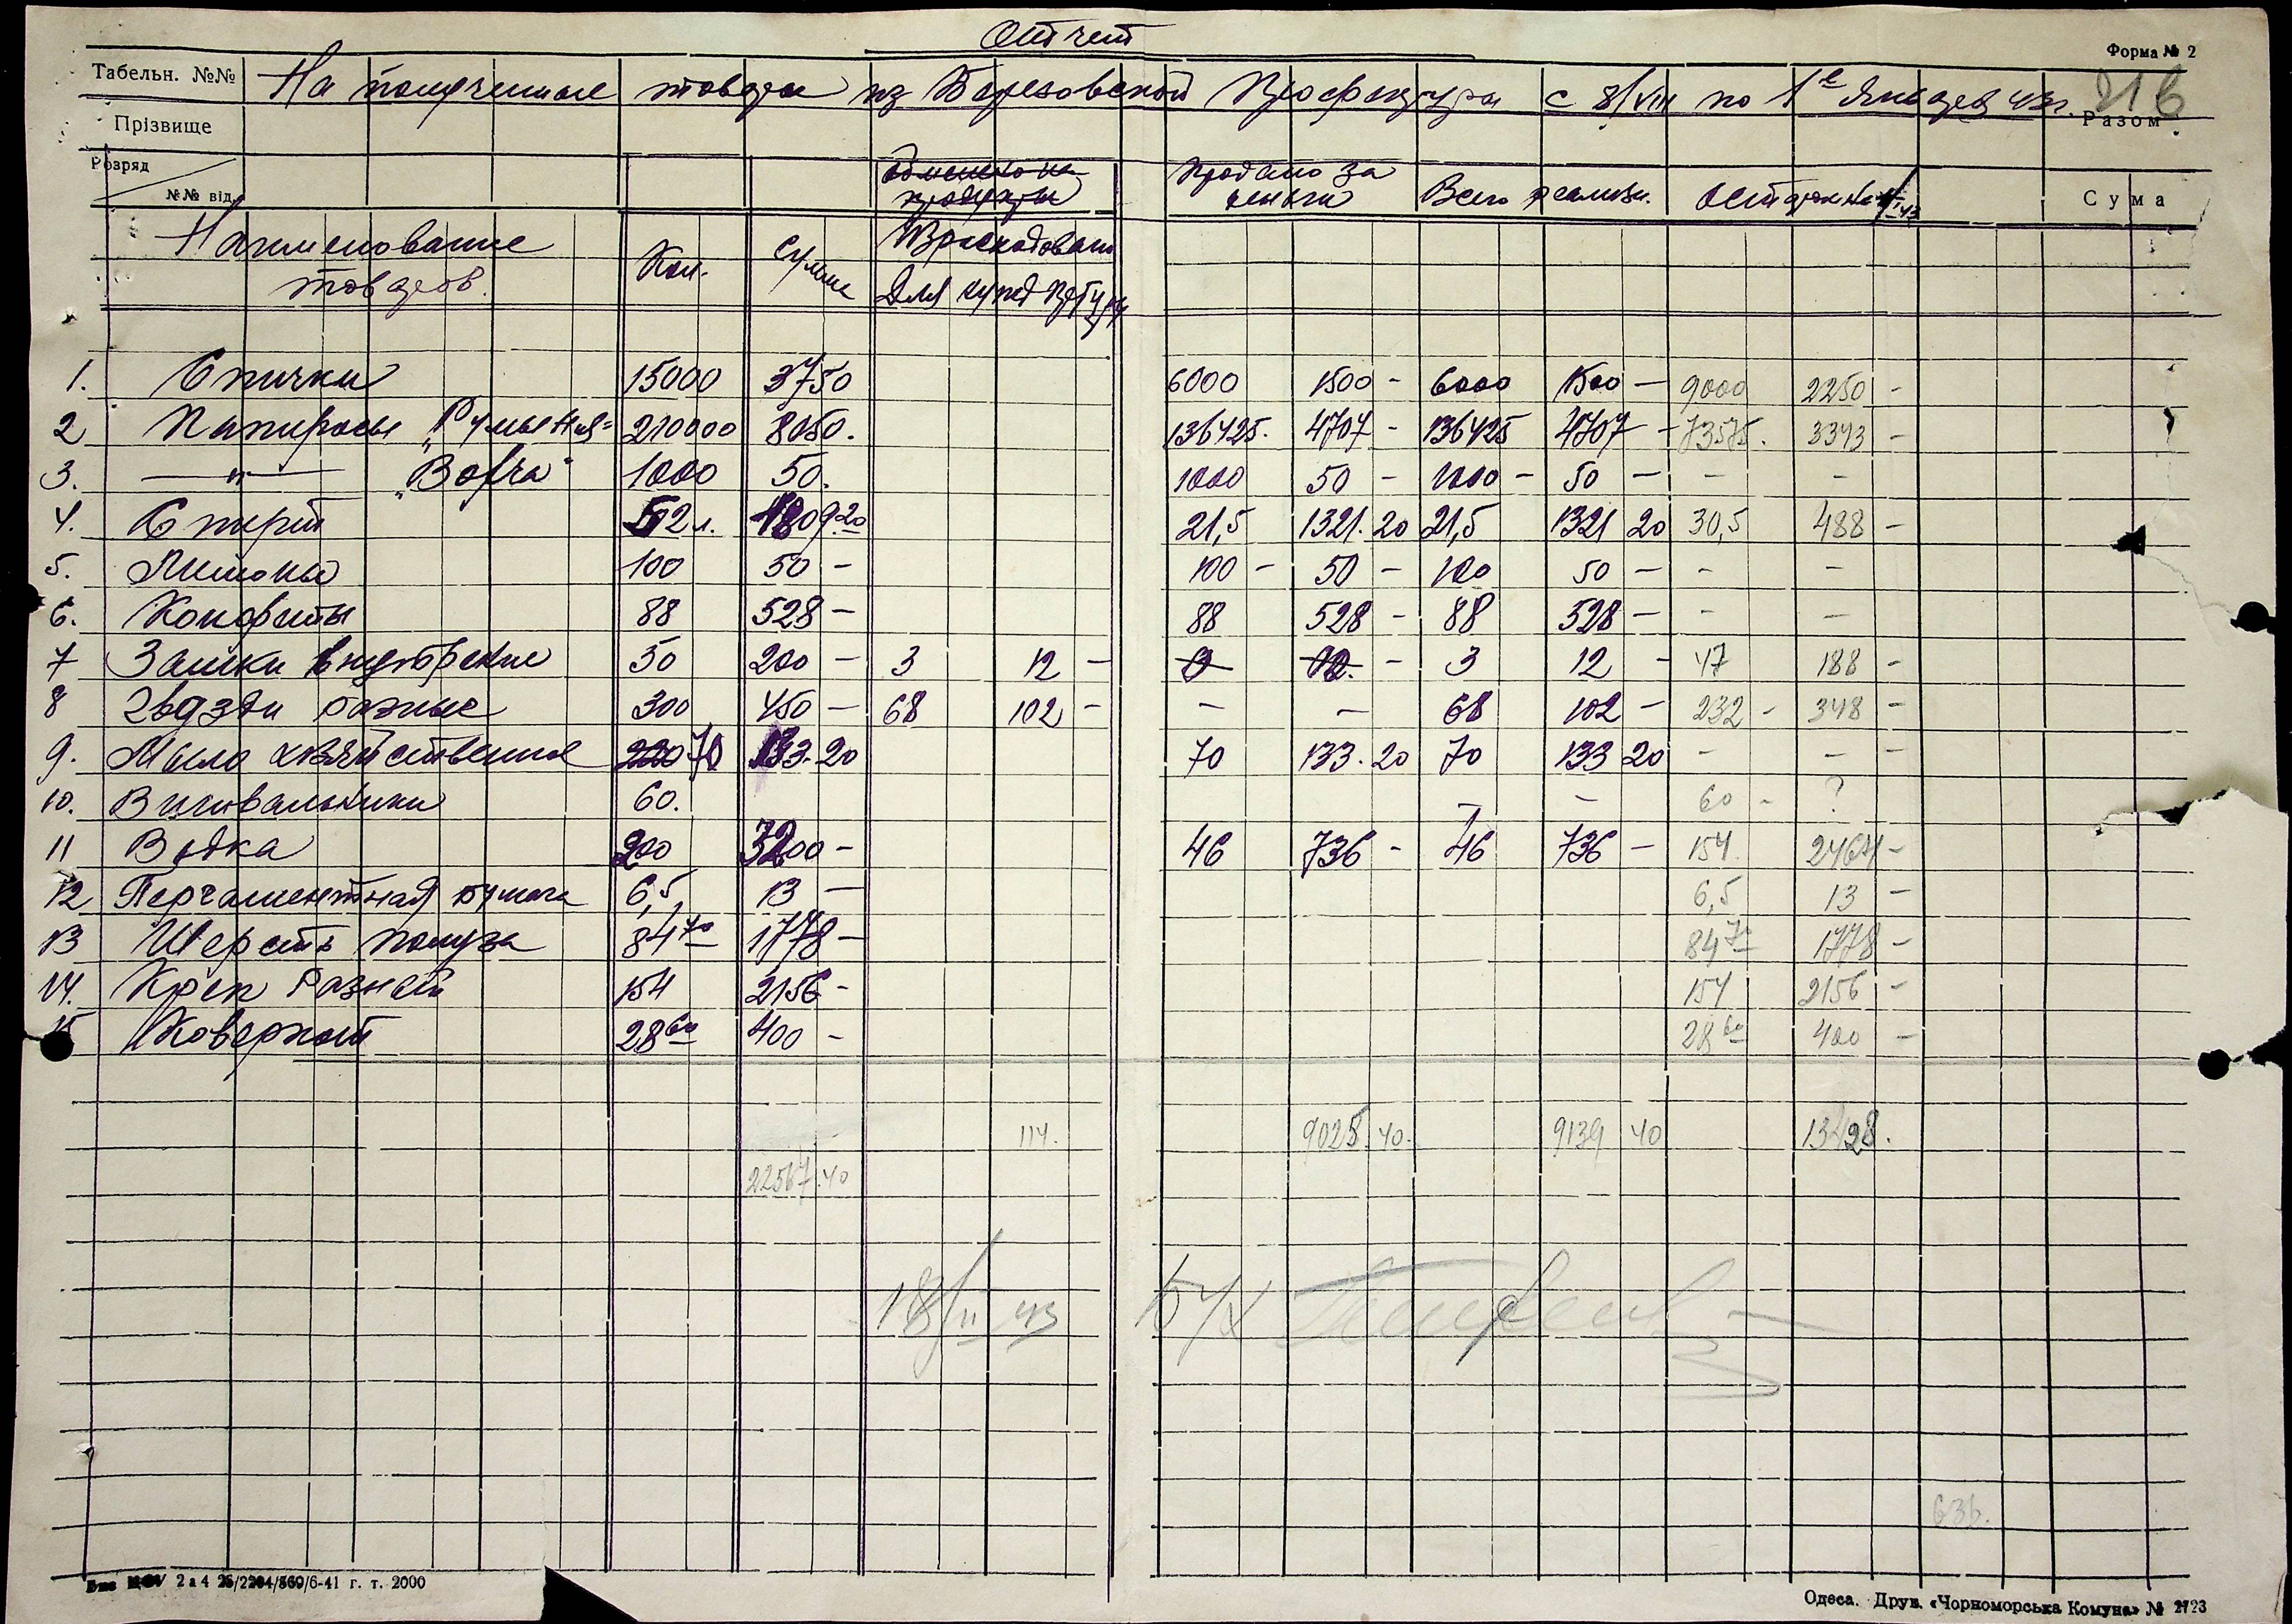 Отчет
Форма № 2
Табельн. №№ На полученные товары из Березовской Префектуры с 8/VIII по 1е Января 43г. 216
Прізвище Разом
Розряд
№№ від.
Обменено на продукты Продано за деньги Всего реализ. Остаток на 1/I 43 Сума
Наименование товаров. Кол. Сумма Израсходовано
Для нужд Претуры
1. Спички 15000 3750 6000 1500 - 6000 1500 - 9000 2250 -
2 Папиросы „Румыния" 210000 8050. 136425. 4707 - 136425 4707 - 73575. 3343 -
3. —"— „Вофча" 1000 50. 1000 50 - 1000 - 50 - - -
4. Спирт 52 л. 1809.20 21,5 1321.20 21,5 1321 20 30,5 488 -
5. Лимоны 100 50 - 100 - 50 - 100 50 - - -
6. Конфиты 88 528 - 88 528 - 88 528 - - -
7 Замки внутренние 50 200 - 3 12 - 3 12. - 3 12 - 47 188 -
8 Гвозди разные 300 450 - 68 102 - - - 68 102 - 232 - 348 -
9. Мыло хозяйственное 220 70 133.20 70 133.20 70 133 20 - - -
10. Вишивальники 60. - - 60 - ?
11 Водка 200 3200 - 46 736 - 46 736 - 154 2464 -
12 Пергаментная бумага 6,5 13 - 6,5 13 -
13 Шерсть 84 70 1778 - 84 70 1778 -
14. Креп Разный 154 2156 - 154 2156 -
15 Коверкот 28 60 400 - 28 60 400 -
114. 9025.40. 9139 40 13428.
22567.40
18/II 43 Бух
636.
2а4 25/2204/560/6-41 г. т. 2000
Одеса. Друк. «Чорноморська Комуна» № 2723